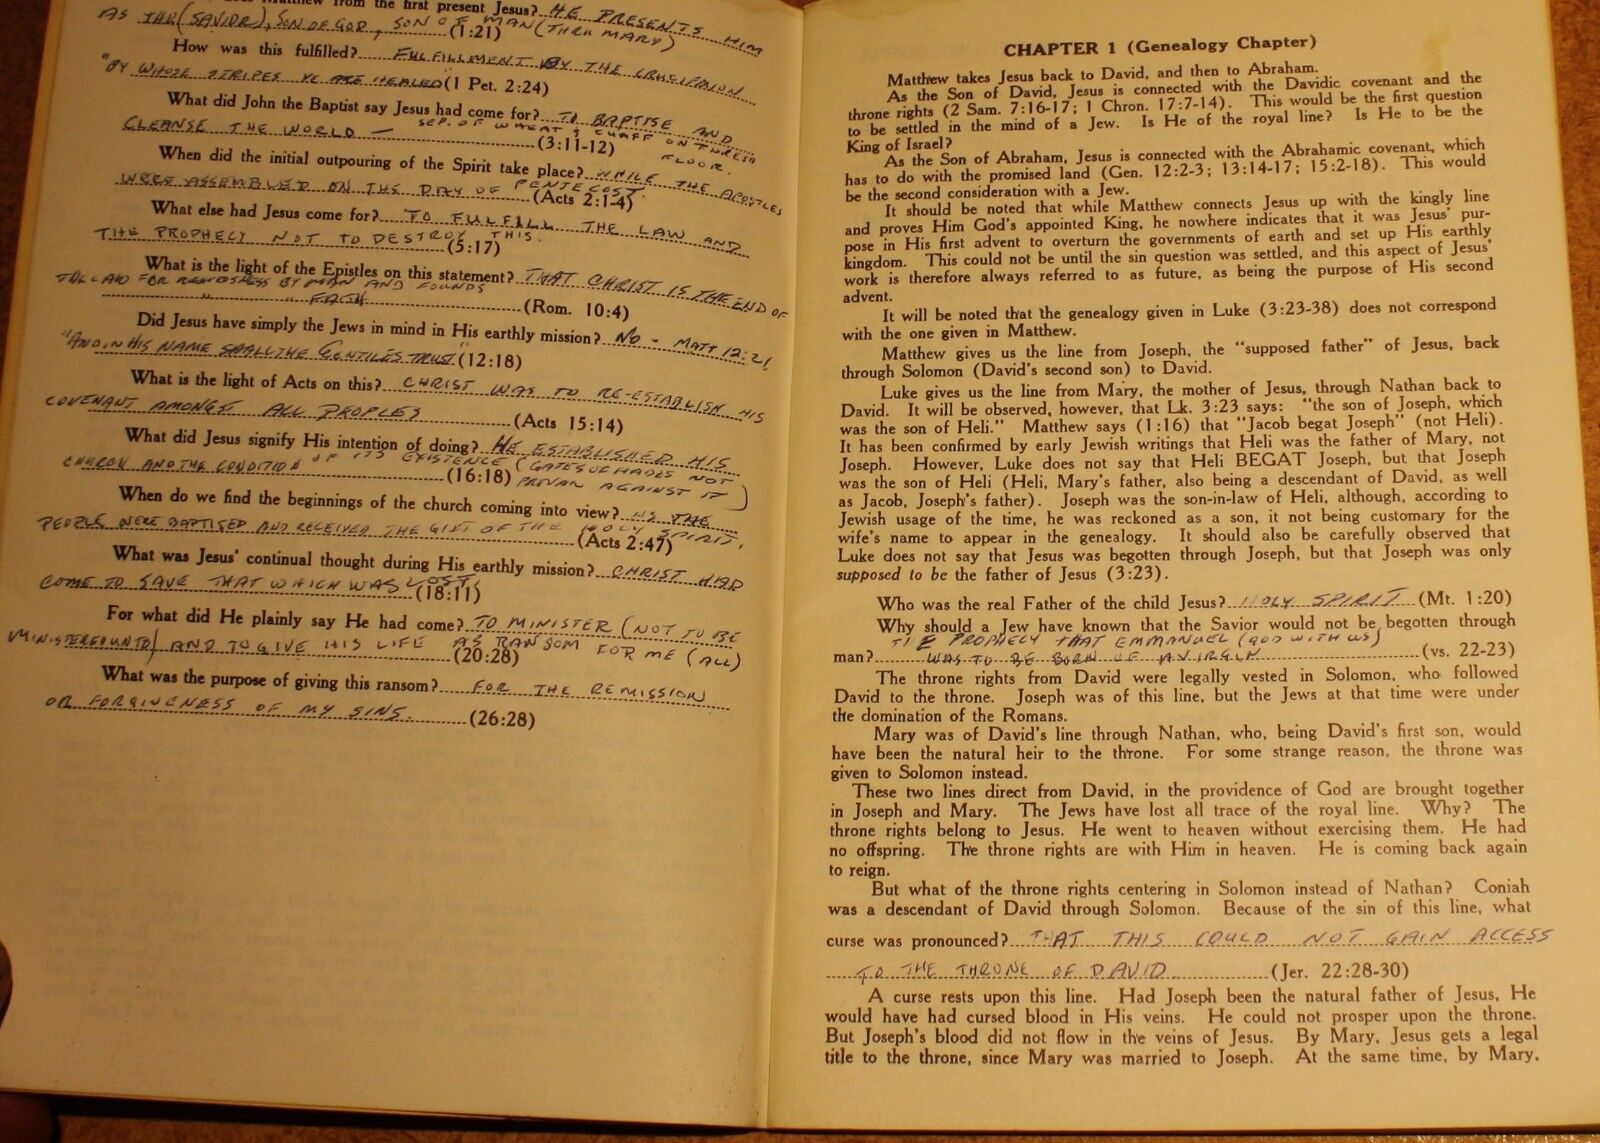 Matthew from the first present Jesus? HE PRESENTS HIM
AS THE (SAVIOR), SON OF GOD, SON OF MAN (THRU MARY) (1:21)
How was this fulfilled? FULFILLMENT BY THE CRUCIFIXION
"BY WHOSE STRIPES YE ARE HEALED" (1 Pet. 2:24)
What did John the Baptist say Jesus had come for? TO BAPTISE AND
CLEANSE THE WORLD — SEP. OF WHEAT & CHAFF ON THRESH FLOOR. (3:11-12)
When did the initial outpouring of the Spirit take place? WHILE THE APOSTLES
WERE ASSEMBLED ON THE DAY OF PENTECOST. (Acts 2:1-4)
What else had Jesus come for? TO FULFILL THE LAW AND
THE PROPHECY NOT TO DESTROY THIS. (5:17)
What is the light of the Epistles on this statement? THAT CHRIST IS THE END OF
THE LAW FOR BY MAN AND
FAITH (Rom. 10:4)
Did Jesus have simply the Jews in mind in His earthly mission? NO - MATT 12:21,
"AND IN HIS NAME SHALL THE GENTILES TRUST" (12:18)
What is the light of Acts on this? CHRIST WAS TO RE-ESTABLISH HIS
COVENANT AMONGST ALL PEOPLES (Acts 15:14)
What did Jesus signify His intention of doing? HE ESTABLISHED HIS
CHURCH AND THE CONDITION OF ITS EXISTENCE (GATES OF HADES NOT PREVAIL AGAINST IT) (16:18)
When do we find the beginnings of the church coming into view? AS THE
PEOPLE WERE BAPTISED AND RECEIVED THE GIFT OF THE HOLY SPIRIT. (Acts 2:47)
What was Jesus' continual thought during His earthly mission? CHRIST HAD
COME TO SAVE THAT WHICH WAS LOST. (18:11)
For what did He plainly say He had come? TO MINISTER (NOT TO BE
MINISTERED UNTO) AND TO GIVE HIS LIFE AS RANSOM FOR ME (ALL) (20:28)
What was the purpose of giving this ransom? FOR THE REMISSION
OR FORGIVENESS OF MY SINS. (26:28)
CHAPTER 1 (Genealogy Chapter)
Matthew takes Jesus back to David, and then to Abraham.
As the Son of David, Jesus is connected with the Davidic covenant and the
throne rights (2 Sam. 7:16-17; 1 Chron. 17:7-14). This would be the first question
to be settled in the mind of a Jew. Is He of the royal line? Is He to be the
King of Israel?
As the Son of Abraham, Jesus is connected with the Abrahamic covenant, which
has to do with the promised land (Gen. 12:2-3; 13:14-17; 15:2-18). This would
be the second consideration with a Jew.
It should be noted that while Matthew connects Jesus up with the kingly line
and proves Him God's appointed King, he nowhere indicates that it was Jesus' pur-
pose in His first advent to overturn the governments of earth and set up His earthly
kingdom. This could not be until the sin question was settled, and this aspect of Jesus'
work is therefore always referred to as future, as being the purpose of His second
advent.
It will be noted that the genealogy given in Luke (3:23-38) does not correspond
with the one given in Matthew.
Matthew gives us the line from Joseph, the "supposed father" of Jesus, back
through Solomon (David's second son) to David.
Luke gives us the line from Mary, the mother of Jesus, through Nathan back to
David. It will be observed, however, that Lk. 3:23 says: "the son of Joseph, which
was the son of Heli." Matthew says (1:16) that "Jacob begat Joseph" (not Heli).
It has been confirmed by early Jewish writings that Heli was the father of Mary, not
Joseph. However, Luke does not say that Heli BEGAT Joseph, but that Joseph
was the son of Heli (Heli, Mary's father, also being a descendant of David, as well
as Jacob, Joseph's father). Joseph was the son-in-law of Heli, although, according to
Jewish usage of the time, he was reckoned as a son, it not being customary for the
wife's name to appear in the genealogy. It should also be carefully observed that
Luke does not say that Jesus was begotten through Joseph, but that Joseph was only
supposed to be the father of Jesus (3:23).
Who was the real Father of the child Jesus? HOLY SPIRIT (Mt. 1:20)
Why should a Jew have known that the Savior would not be begotten through
THE PROPHECY THAT EMMANUEL (GOD WITH US)
man? WAS TO BE BORN OF A VIRGIN (vs. 22-23)
The throne rights from David were legally vested in Solomon, who followed
David to the throne. Joseph was of this line, but the Jews at that time were under
the domination of the Romans.
Mary was of David's line through Nathan, who, being David's first son, would
have been the natural heir to the throne. For some strange reason, the throne was
given to Solomon instead.
These two lines direct from David, in the providence of God are brought together
in Joseph and Mary. The Jews have lost all trace of the royal line. Why? The
throne rights belong to Jesus. He went to heaven without exercising them. He had
no offspring. The throne rights are with Him in heaven. He is coming back again
to reign.
But what of the throne rights centering in Solomon instead of Nathan? Coniah
was a descendant of David through Solomon. Because of the sin of this line, what
curse was pronounced? THAT THIS COULD NOT GAIN ACCESS
TO THE THRONE OF DAVID (Jer. 22:28-30)
A curse rests upon this line. Had Joseph been the natural father of Jesus, He
would have had cursed blood in His veins. He could not prosper upon the throne.
But Joseph's blood did not flow in the veins of Jesus. By Mary, Jesus gets a legal
title to the throne, since Mary was married to Joseph. At the same time, by Mary,